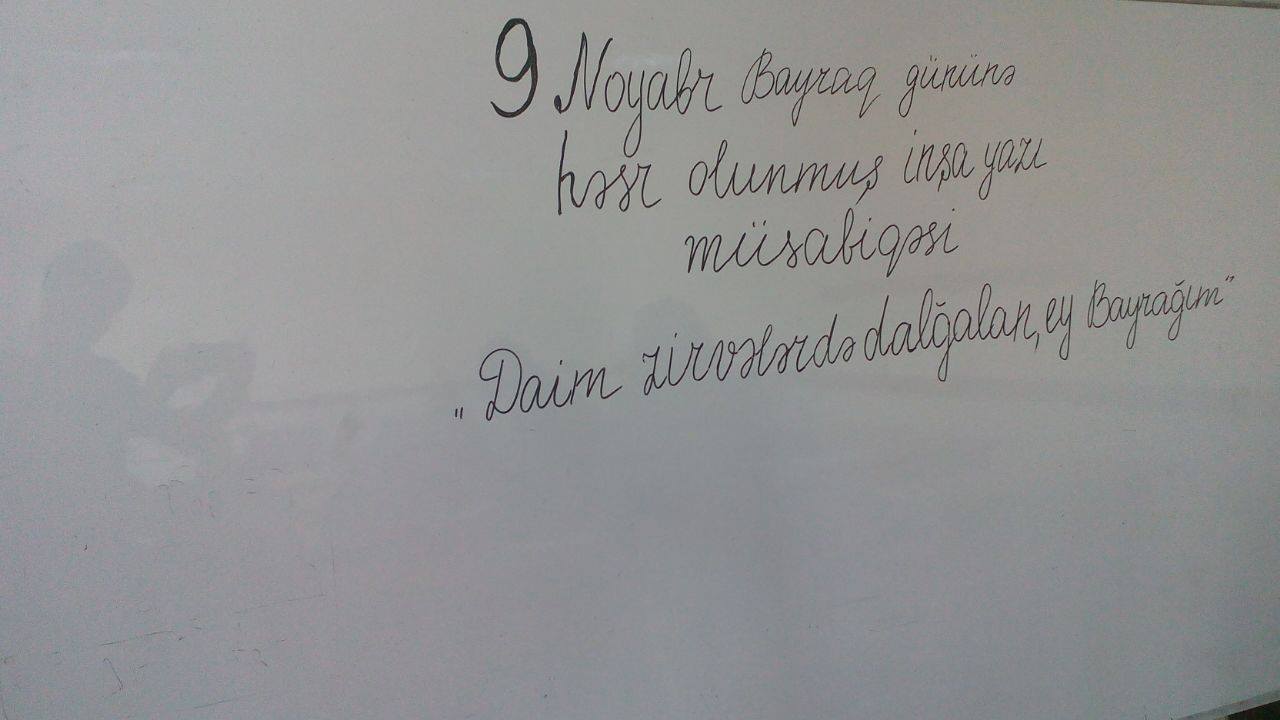 9 Noyabr Bayraq gününə
həsr olunmuş inşa yazı
müsabiqəsi
"Daim zirvələrdə dalğalan, ey Bayrağım"